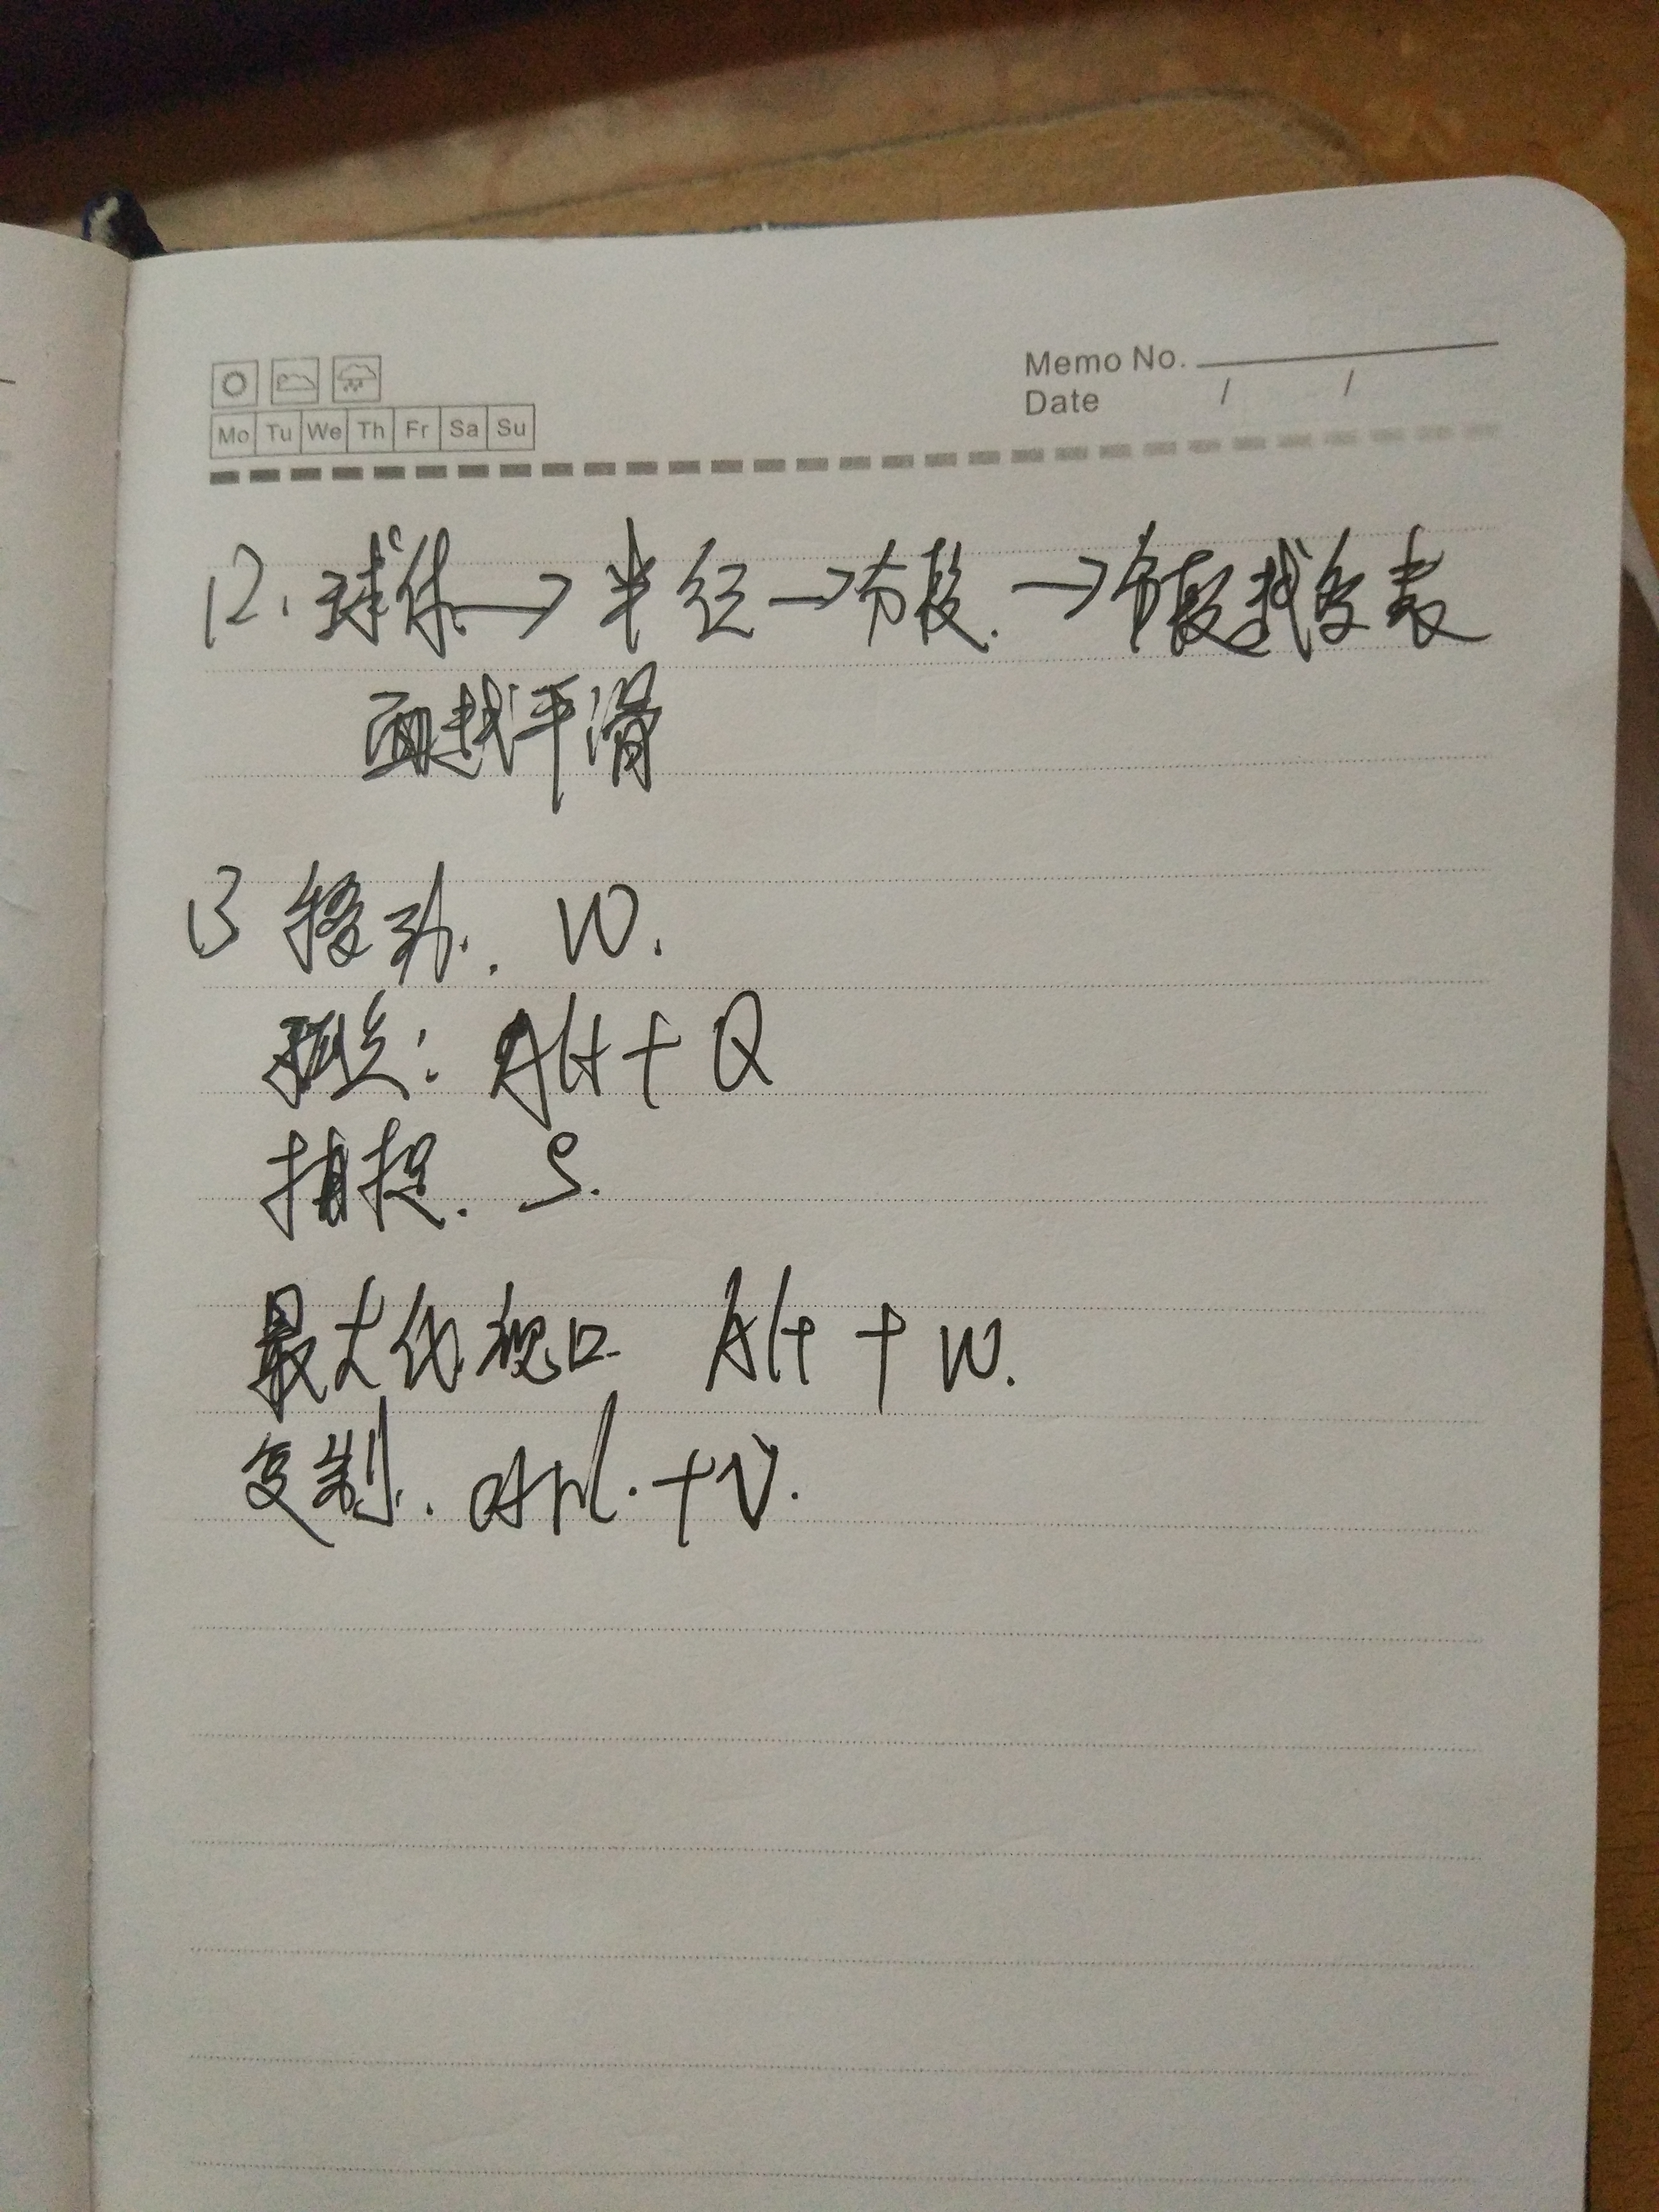 Memo No.
Date / /
Mo Tu We Th Fr Sa Su
12. 球体→半径→分段.→分段越多表
面越平滑
13 移动. W.
孤立: Alt + Q
捕捉. S.
最大化视口 Alt + W.
复制. ctrl.+V.